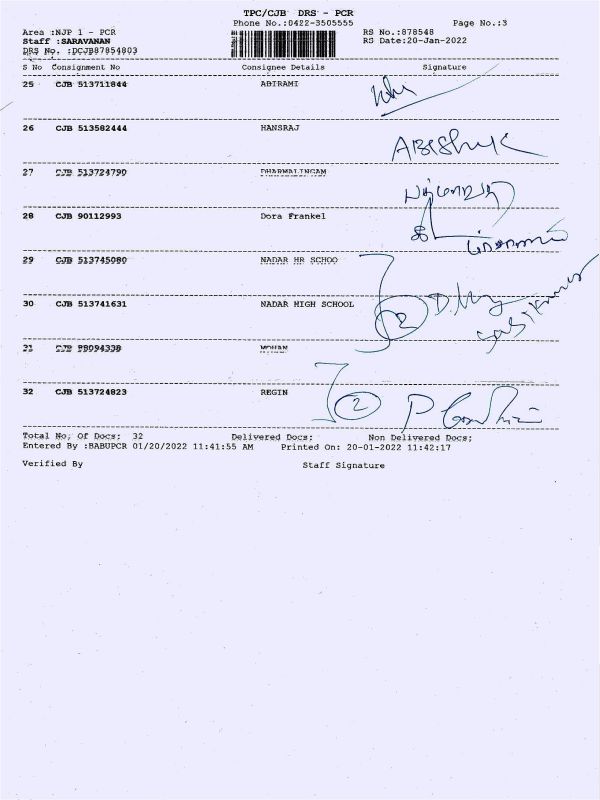 TPC/CJB DRS - PCR
Phone No.:0422-3505555 Page No.:3
Area :NJP 1 - PCR RS No.:878548
Staff :SARAVANAN RS Date:20-Jan-2022
DRS No. :DCJB87854803
S No Consignment No Consignee Details Signature
25 CJB 513711844 ABIRAMI
26 CJB 513582444 HANSRAJ
27 CJB 513724790 DHARMALINGAM
28 CJB 90112993 Dora Frankel
29 CJB 513745080 NADAR HR SCHOO
30 CJB 513741631 NADAR HIGH SCHOOL 2
31 CJB 88094338 MOHAN
32 CJB 513724823 REGIN 2
Total No. Of Docs: 32 Delivered Docs: Non Delivered Docs:
Entered By :BABUPCR 01/20/2022 11:41:55 AM Printed On: 20-01-2022 11:42:17
Verified By Staff Signature